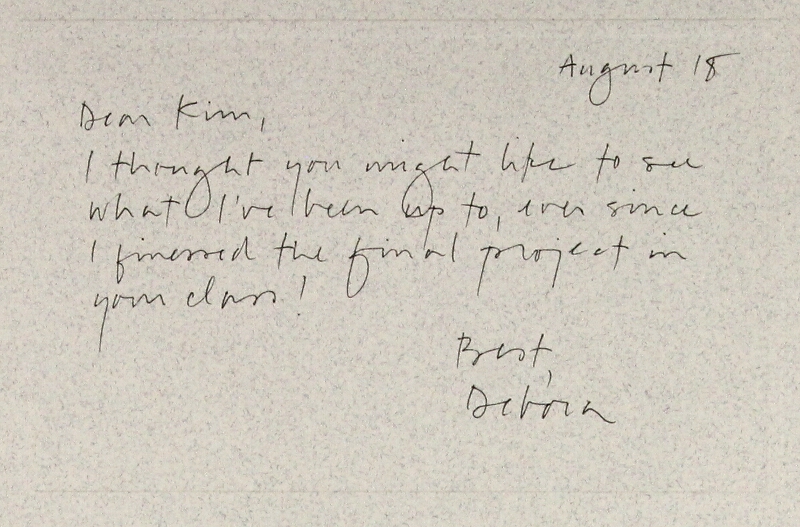 August 18
Dear Kim,
I thought you might like to see
what I've been up to, ever since
I finessed the final project in
your class!
Best,
Debora